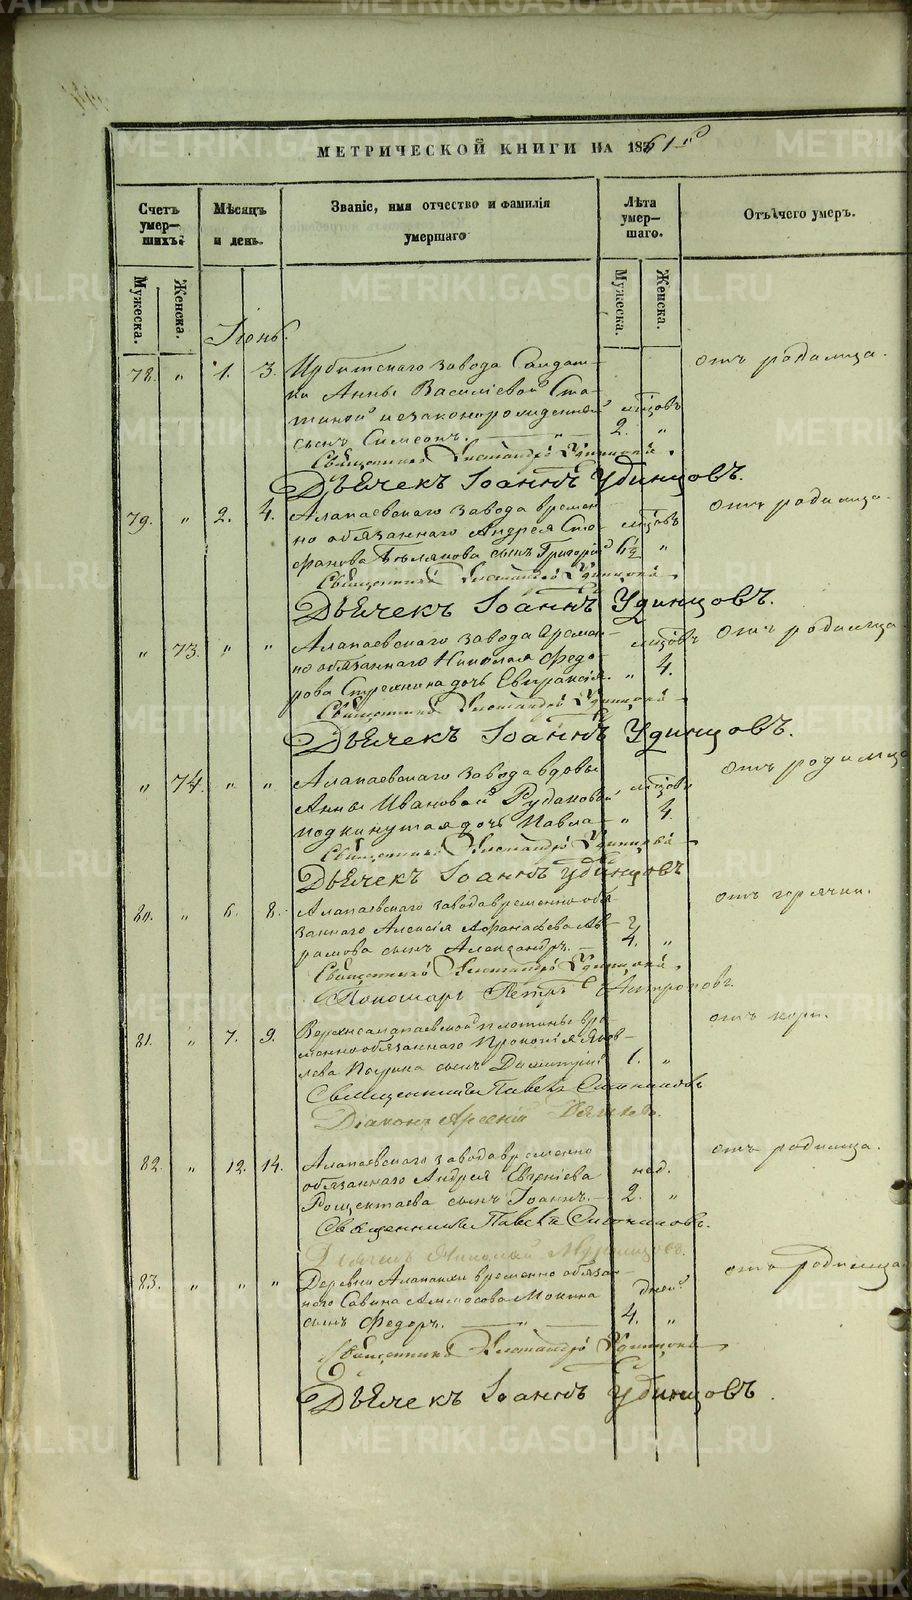 МЕТРИЧЕСКОЙ КНИГИ НА 1861й
Счетъ умер-шихъ.
Мѣсяцъ и день.
Званіе, имя отчество и фамилія умершаго
Лѣта умер-шаго.
Отъ чего умеръ.
Мужеска.
Женска.
Мужеска.
Женска.
Іюнь.
78. " 1. 3. Ирбитскаго завода Солдат- отъ родимца.
ки Анны Васильевой Ста-
тиной незаконорожденный мѣсяцовъ
сынъ Симеонъ. 2. "
Священникъ Александръ Удинцовъ
Дьячекъ Іоаннъ Удинцовъ.
79. " 2. 4. Алапаевскаго завода времен- отъ родимца.
но обязаннаго Андрея Сте- мѣсяцовъ
фанова сынъ Григорій 6½ "
Священникъ Александръ Удинцовъ
Дьячекъ Іоаннъ Удинцовъ.
" 73. " " Алапаевскаго завода времен- мѣсяцовъ отъ родимца
но обязаннаго Николая Федо-
рова дочь Евпраксія. " 4.
Священникъ Александръ Удинцовъ
Дьячекъ Іоаннъ Удинцовъ.
" 74. " " Алапаевскаго завода вдовы отъ родимца
Анны Ивановой Рудаковой мѣсяцовъ
подкинутая дочь Павла " 4.
Священникъ Александръ Удинцовъ
Дьячекъ Іоаннъ Удинцовъ
80. " 6. 8. Алапаевскаго завода временно обя- отъ горячки.
заннаго Алексія Афанасьева Ав-
рамова сынъ Александръ. 4. "
Священникъ Александръ Удинцовъ
Пономарь Петръ
81. " 7. 9. Верхнеалапаевской плотины вре- отъ кори.
менно обязаннаго Прокопія Яков-
лева сынъ Димитрій 1. "
Священникъ Павелъ
Діаконъ Арсеній
82. " 12. 14. Алапаевскаго завода временно отъ родимца.
обязаннаго Андрея Евгеніева нед.
сынъ Іоаннъ. 2. "
Священникъ Павелъ
Дьячекъ Николай
83. " " " Деревни Алапаихи временно обязан- отъ родимца
наго Савина Аммосова Мокина дней
сынъ Федоръ. 4. "
Священникъ Александръ Удинцовъ
Дьячекъ Іоаннъ Удинцовъ.
METRIKI.GASO-URAL.RU